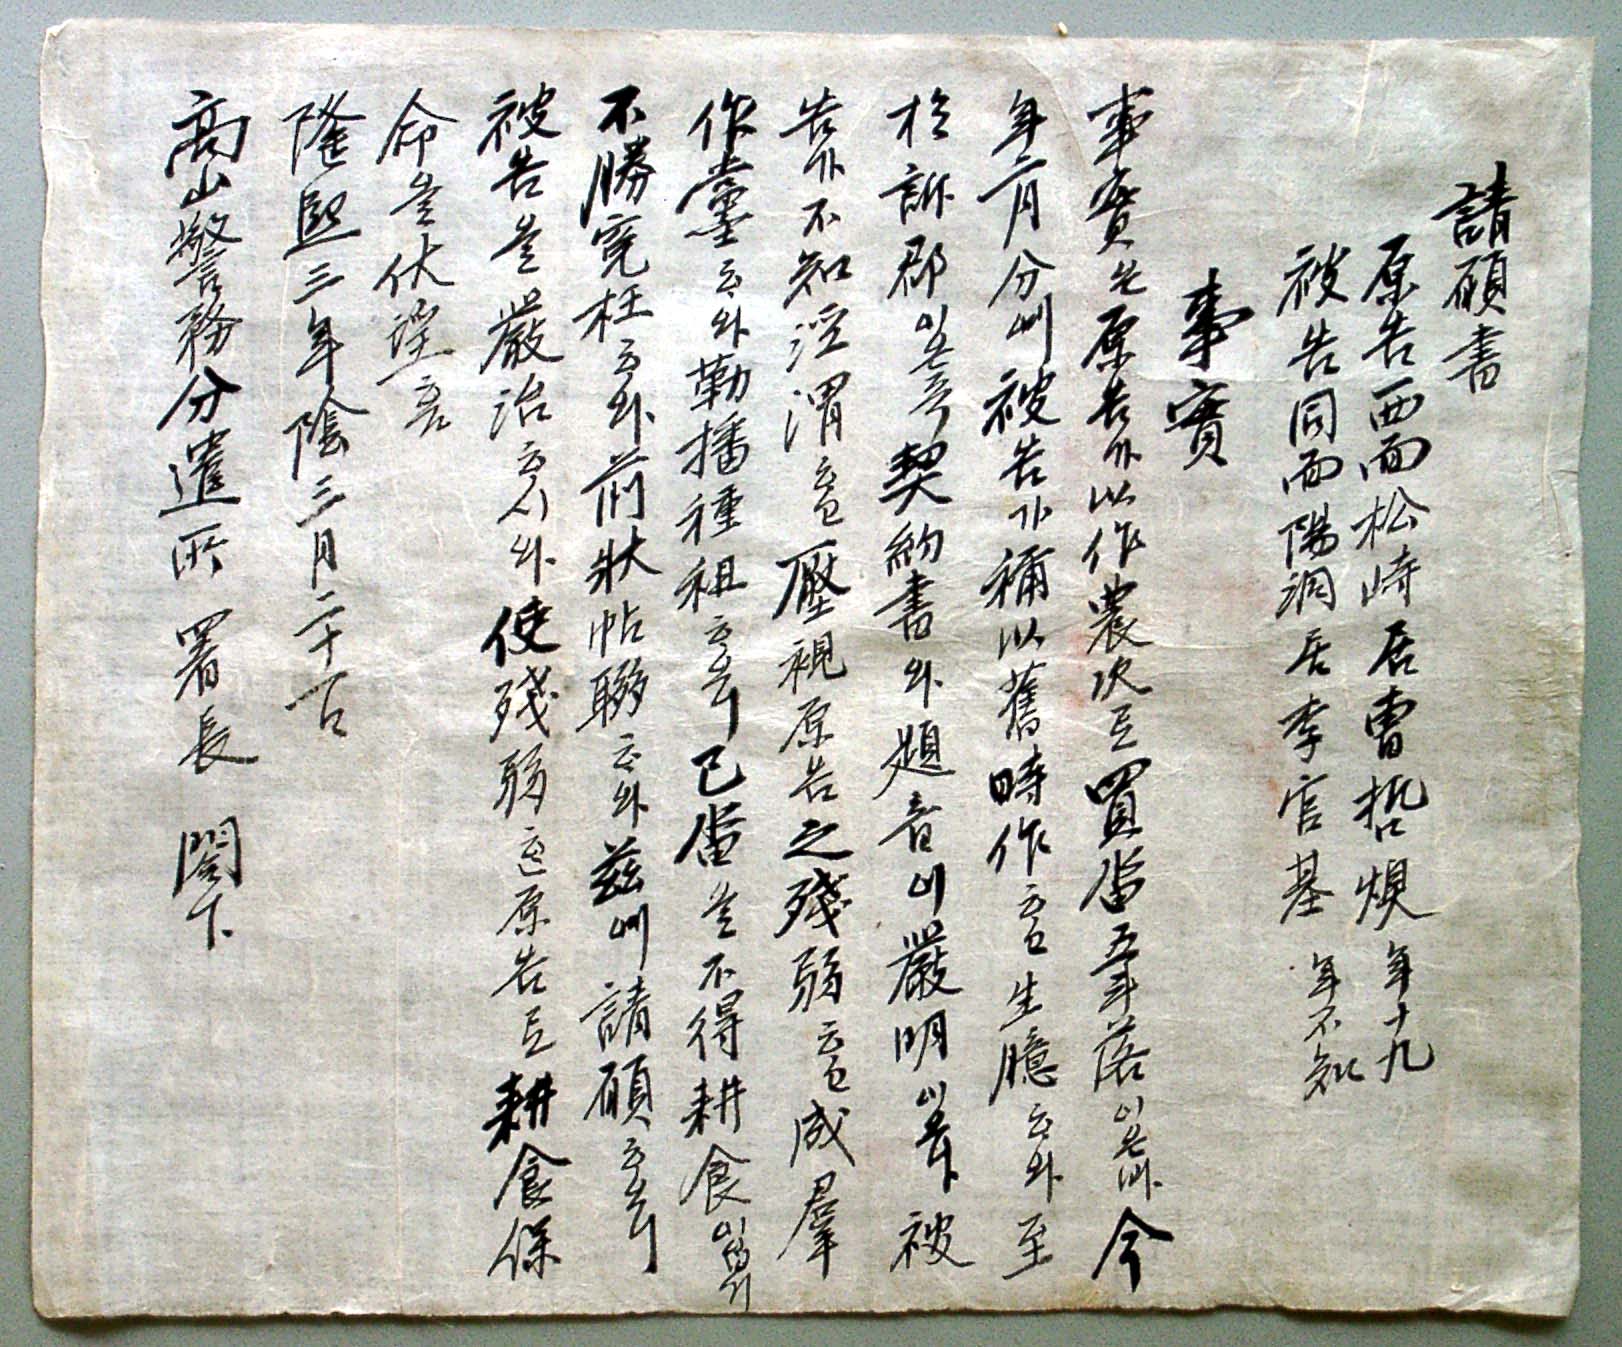 請願書
原告西面松峙居曺哲煥 年十九
被告同面陽洞居李官基 年不知
事實
事實은原告가以作農次로買畓五斗落이온바今
年二月分에被告가稱以舊時作고生臆야至
於訴郡이온즉契約書와題音이嚴明이온다被
告가不知涇渭고壓視原告之殘弱고成羣
作黨야勒播種租온즉已畓을不得耕食이옵기
不勝寃枉야前狀帖聯야玆에請願온니
被告을嚴治시와使殘弱原告로耕食保
命을伏望홈
隆熙三年陰三月二十一日
高山警務分遣所 署長 閤下